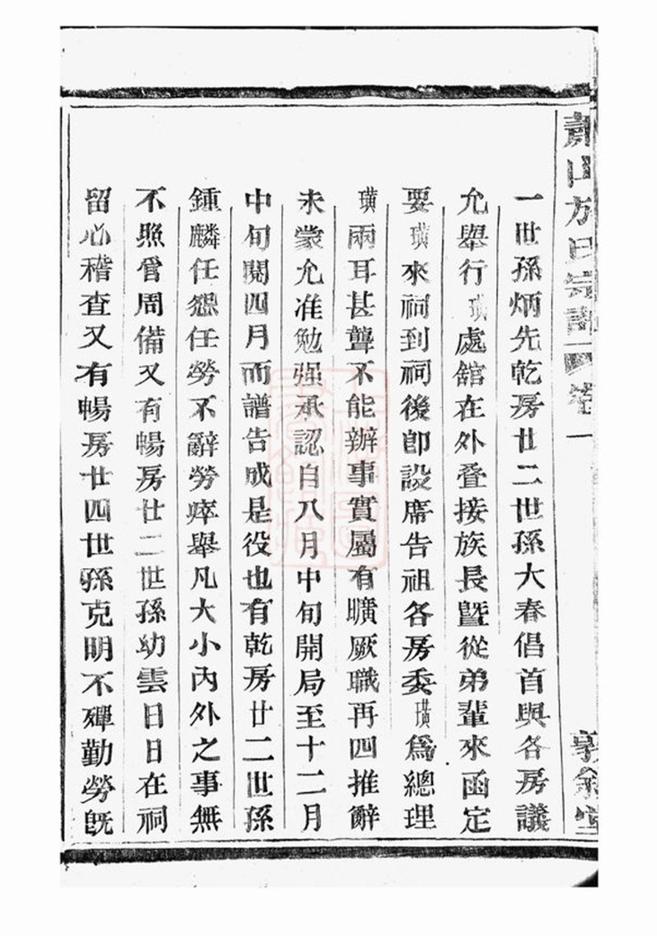 一世孫炳先乾房廿二世孫大春倡首與各房議
允舉行璜處舘在外叠接族長暨從弟輩來函定
要璜來祠到祠後卽設席告祖各房委璜爲總理
璜兩耳甚聾不能辦事實屬有曠厥職再四推辭
未蒙允准勉强承認自八月中旬開局至十二月
中旬閱四月而譜告成是役也有乾房廿二世孫
鍾麟任怨任勞不辭勞瘁舉凡大小內外之事無
不照管周備又有暢房廿二世孫幼雲日日在祠
留心稽查又有暢房廿四世孫克明不殫勤勞旣